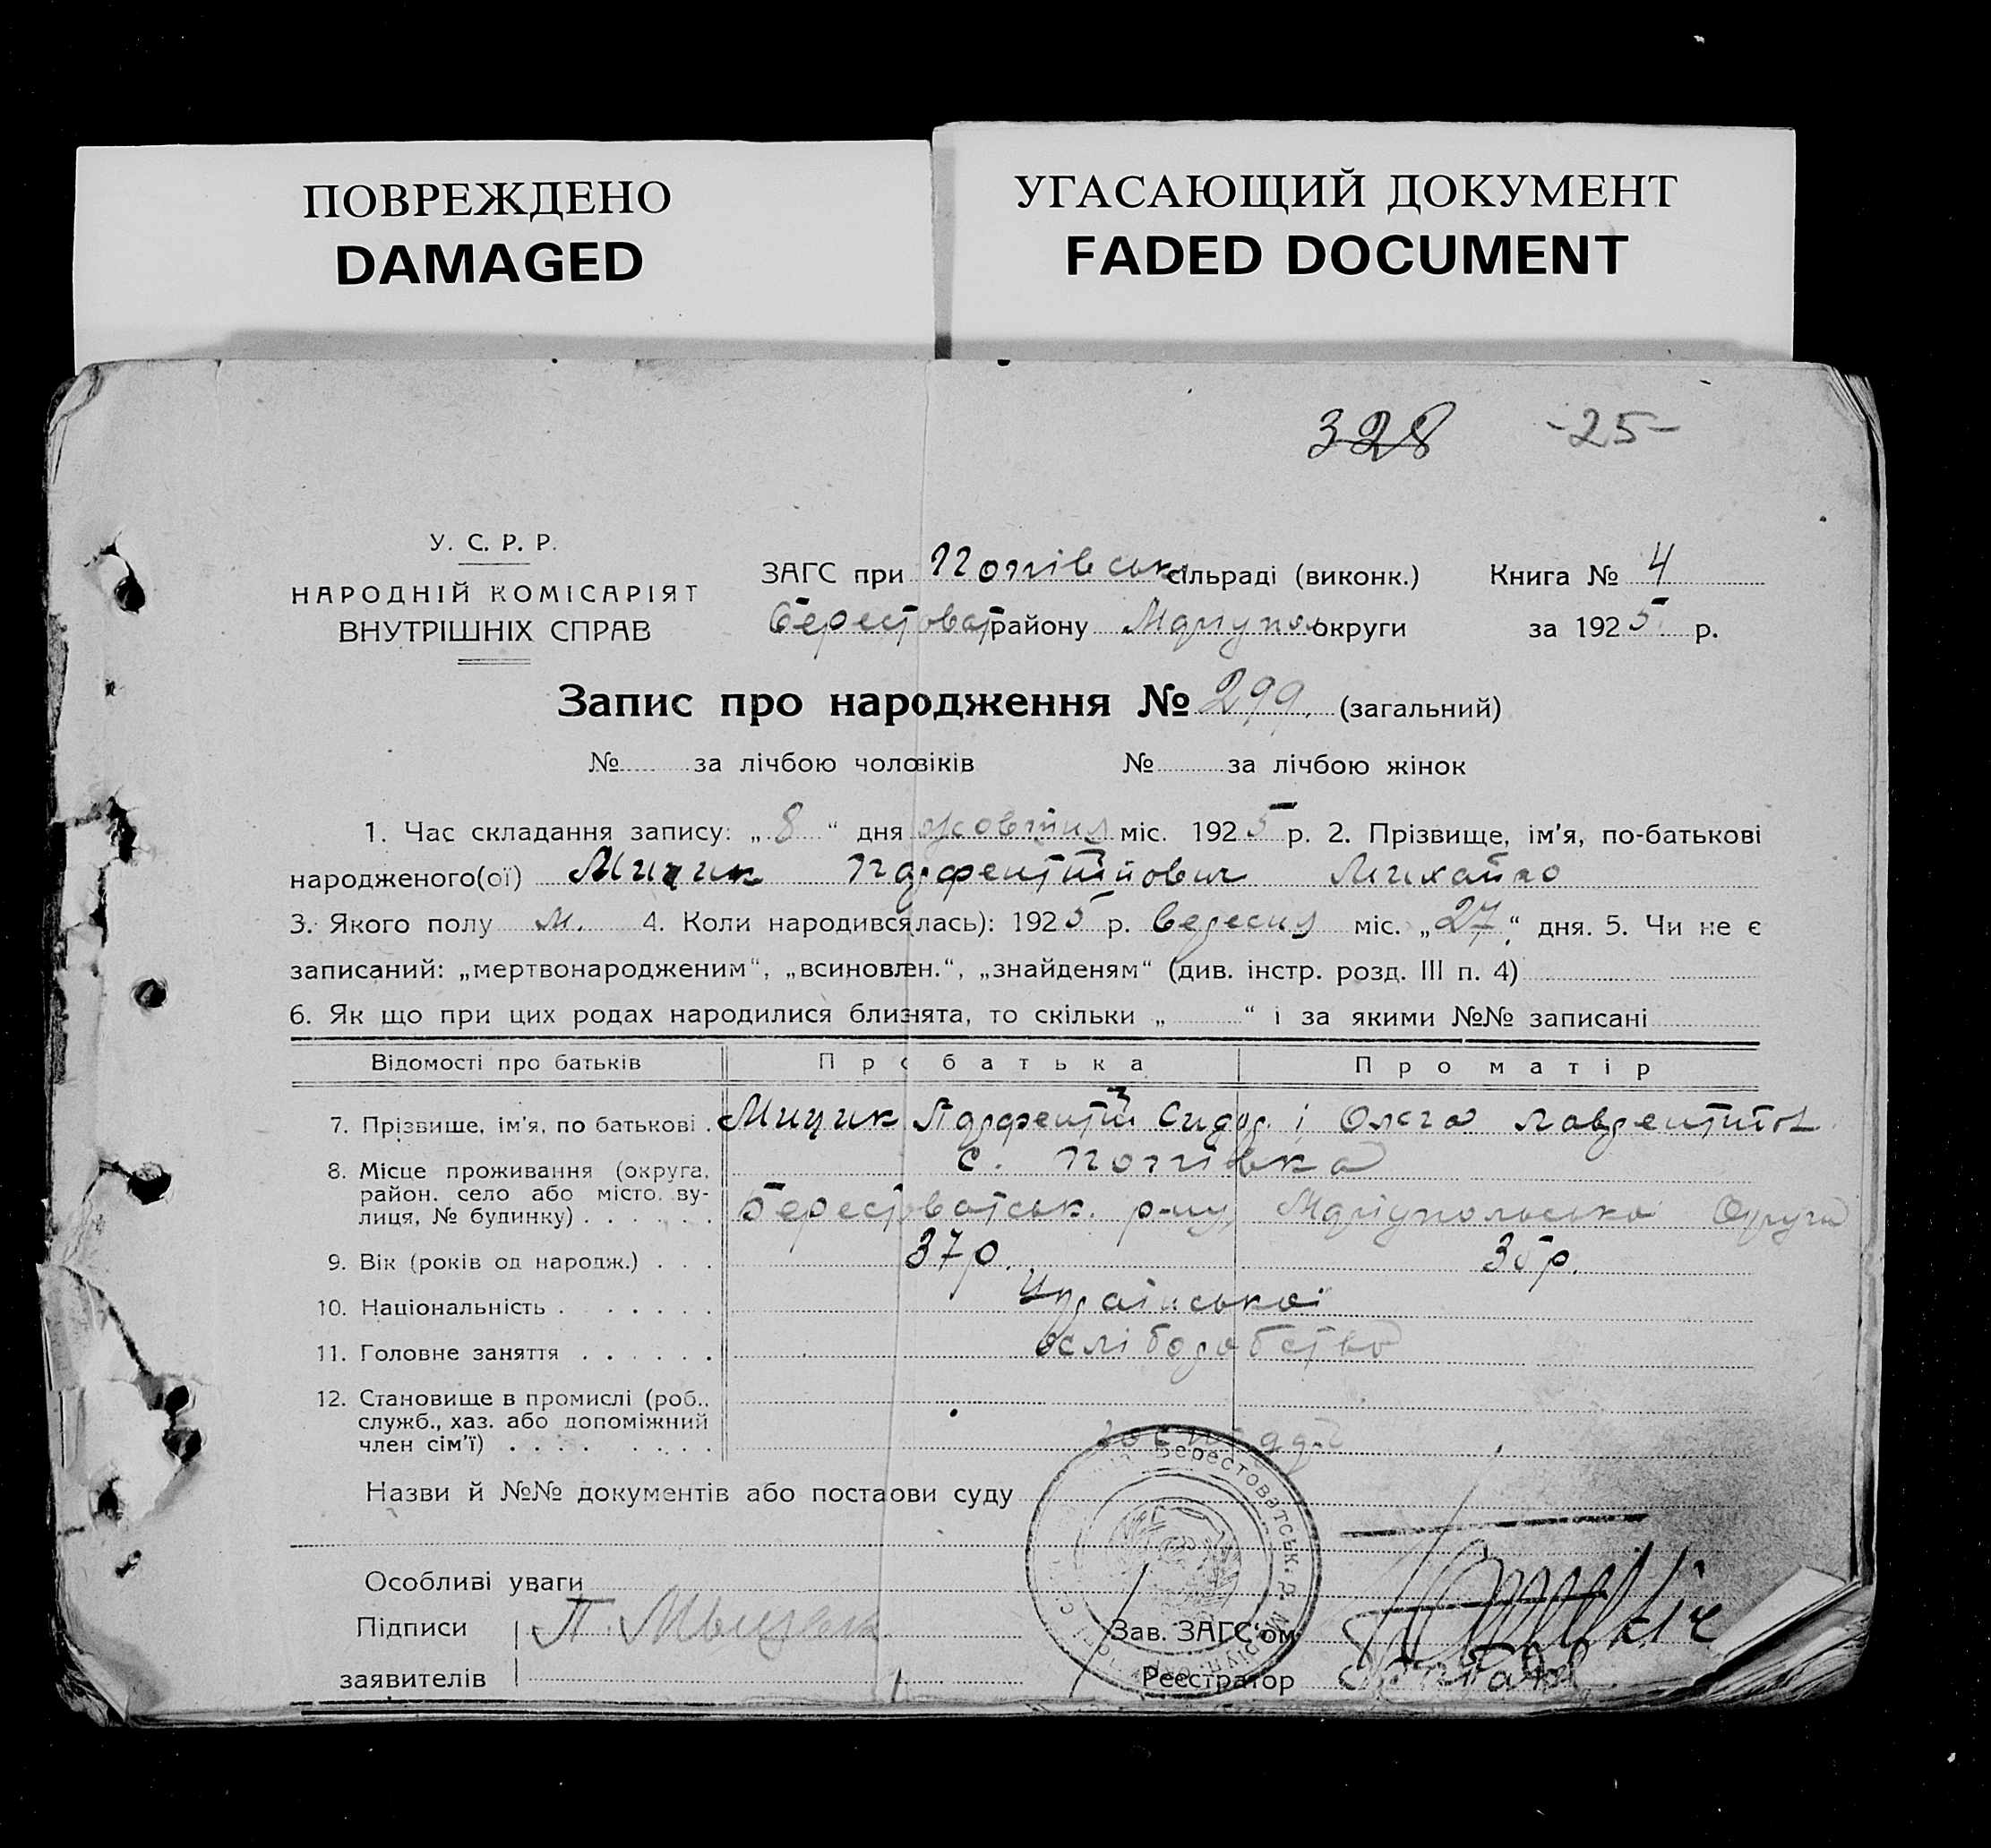 ПОВРЕЖДЕНО
DAMAGED
УГАСАЮЩИЙ ДОКУМЕНТ
FADED DOCUMENT
328 -25-
У. С. Р. Р.
НАРОДНІЙ КОМІСАРІЯТ
ВНУТРІШНІХ СПРАВ
ЗАГС при Попівськ. сільраді (виконк.) Книга № 4
Берестоват району Маріупол округи за 1925 р.
Запис про народження № 299. (загальний)
№ за лічбою чоловіків № за лічбою жінок
1. Час складання запису: „8“ дня жовтня міс. 1925 р. 2. Прізвище, ім'я, по-батькові
народженого(ої) Мицик Парфентійович Михайло
3. Якого полу м. 4. Коли народився(лась): 1925 р. Вересня міс. „27“ дня. 5. Чи не є
записаний: „мертвонародженим“, „всиновлен.“, „знайденям“ (див. інстр. розд. III п. 4)
6. Як що при цих родах народилися близнята, то скільки „ “ і за якими №№ записані
Відомості про батьків Про батька Про матір
7. Прізвище, ім'я, по батькові . Мицик Парфентій Сидор. і Ольга Лаврентійов.
8. Місце проживання (округа, с. Попівка
район, село або місто, ву-
лиця, № будинку) . . . . . . Берестоватськ. р-ну, Маріупольської Округи
9. Вік (років од народж.) . . . 37 р. 35 р.
10. Національність . . . . . . . Української
11. Головне заняття . . . . . . хліборобство
12. Становище в промислі (роб.,
служб., хаз. або допоміжний
член сім'ї) . . . . . . . .
Назви й №№ документів або постанови суду
Берестоватськ. р.
Особливі уваги
Підписи П. Мыцык Зав. ЗАГС'ом
заявителів Реєстратор